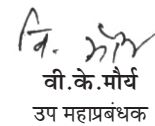 वि. मौर्य
वी.के.मौर्य
उप महाप्रबंधक